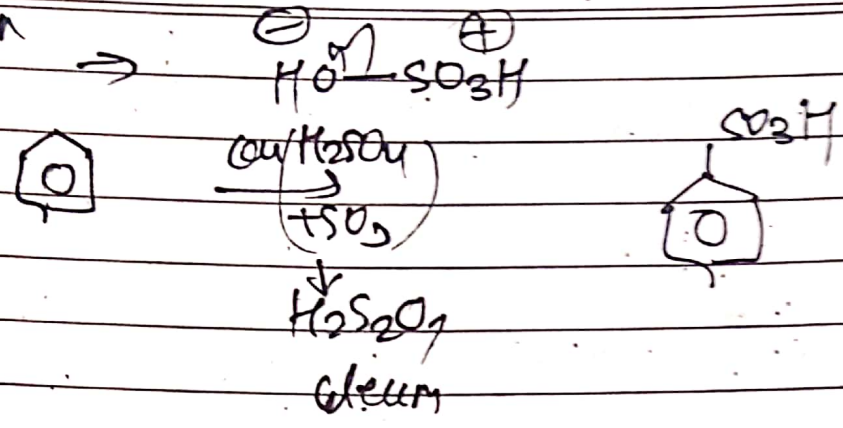 → HO—SO3H
⊖ ⊕
SO3H
con/H2SO4
+SO3
H2S2O7
oleum